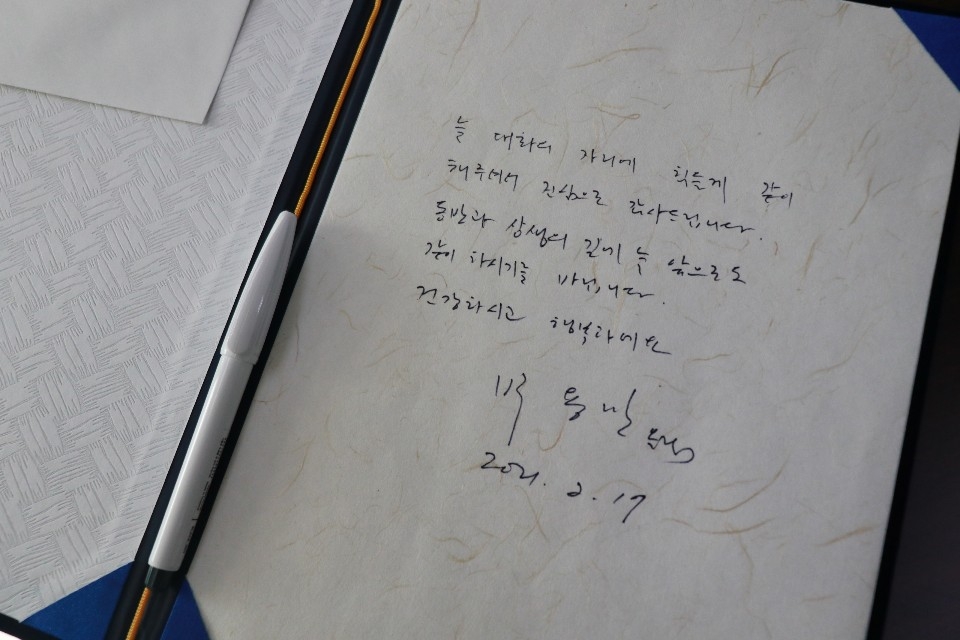 늘 대화의 자리에 힘들게 같이
해주셔서 진심으로 감사드립니다.
동반과 상생의 길에 늘 앞으로도
같이 하시기를 바랍니다.
건강하시고 행복하세요
박 용 만
2021. 2. 17